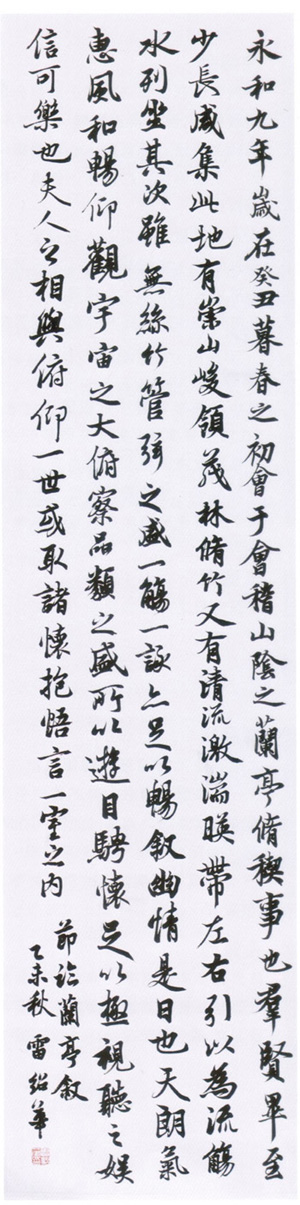 永和九年歲在癸丑暮春之初會于會稽山陰之蘭亭脩稧事也羣賢畢至
少長咸集此地有崇山峻領茂林脩竹又有清流激湍暎帶左右引以為流觴
水列坐其次雖無絲竹管弦之盛一觴一詠亦足以暢敘幽情是日也天朗氣
惠風和暢仰觀宇宙之大俯察品類之盛所以遊目騁懷足以極視聽之娛
信可樂也夫人之相與俯仰一世或取諸懷抱悟言一室之內
節臨蘭亭敘
乙未秋 雷紹華